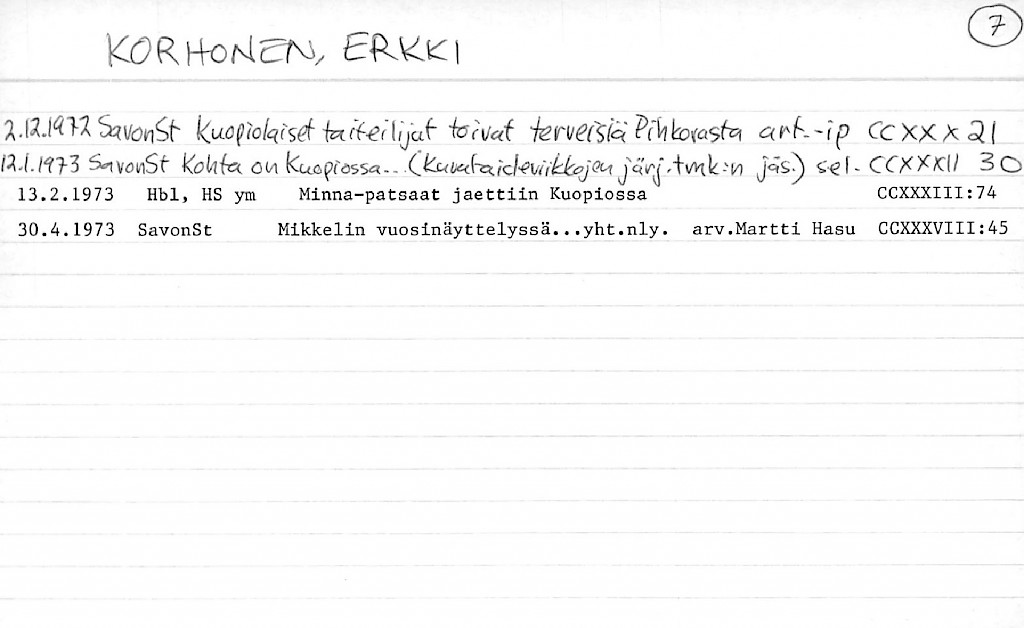 7
KORHONEN, ERKKI
2.12.1972 SavonSt Kuopiolaiset taiteilijat toivat terveisiä Pihkovasta art.-ip CCXXX 21
12.1.1973 SavonSt Kohta on Kuopiossa... (Kuvataideviikkojen järj.tmk:n jäs.) sel. CCXXXII 30
13.2.1973 Hbl, HS ym Minna-patsaat jaettiin Kuopiossa CCXXXIII:74
30.4.1973 SavonSt Mikkelin vuosinäyttelyssä...yht.nly. arv.Martti Hasu CCXXXVIII:45